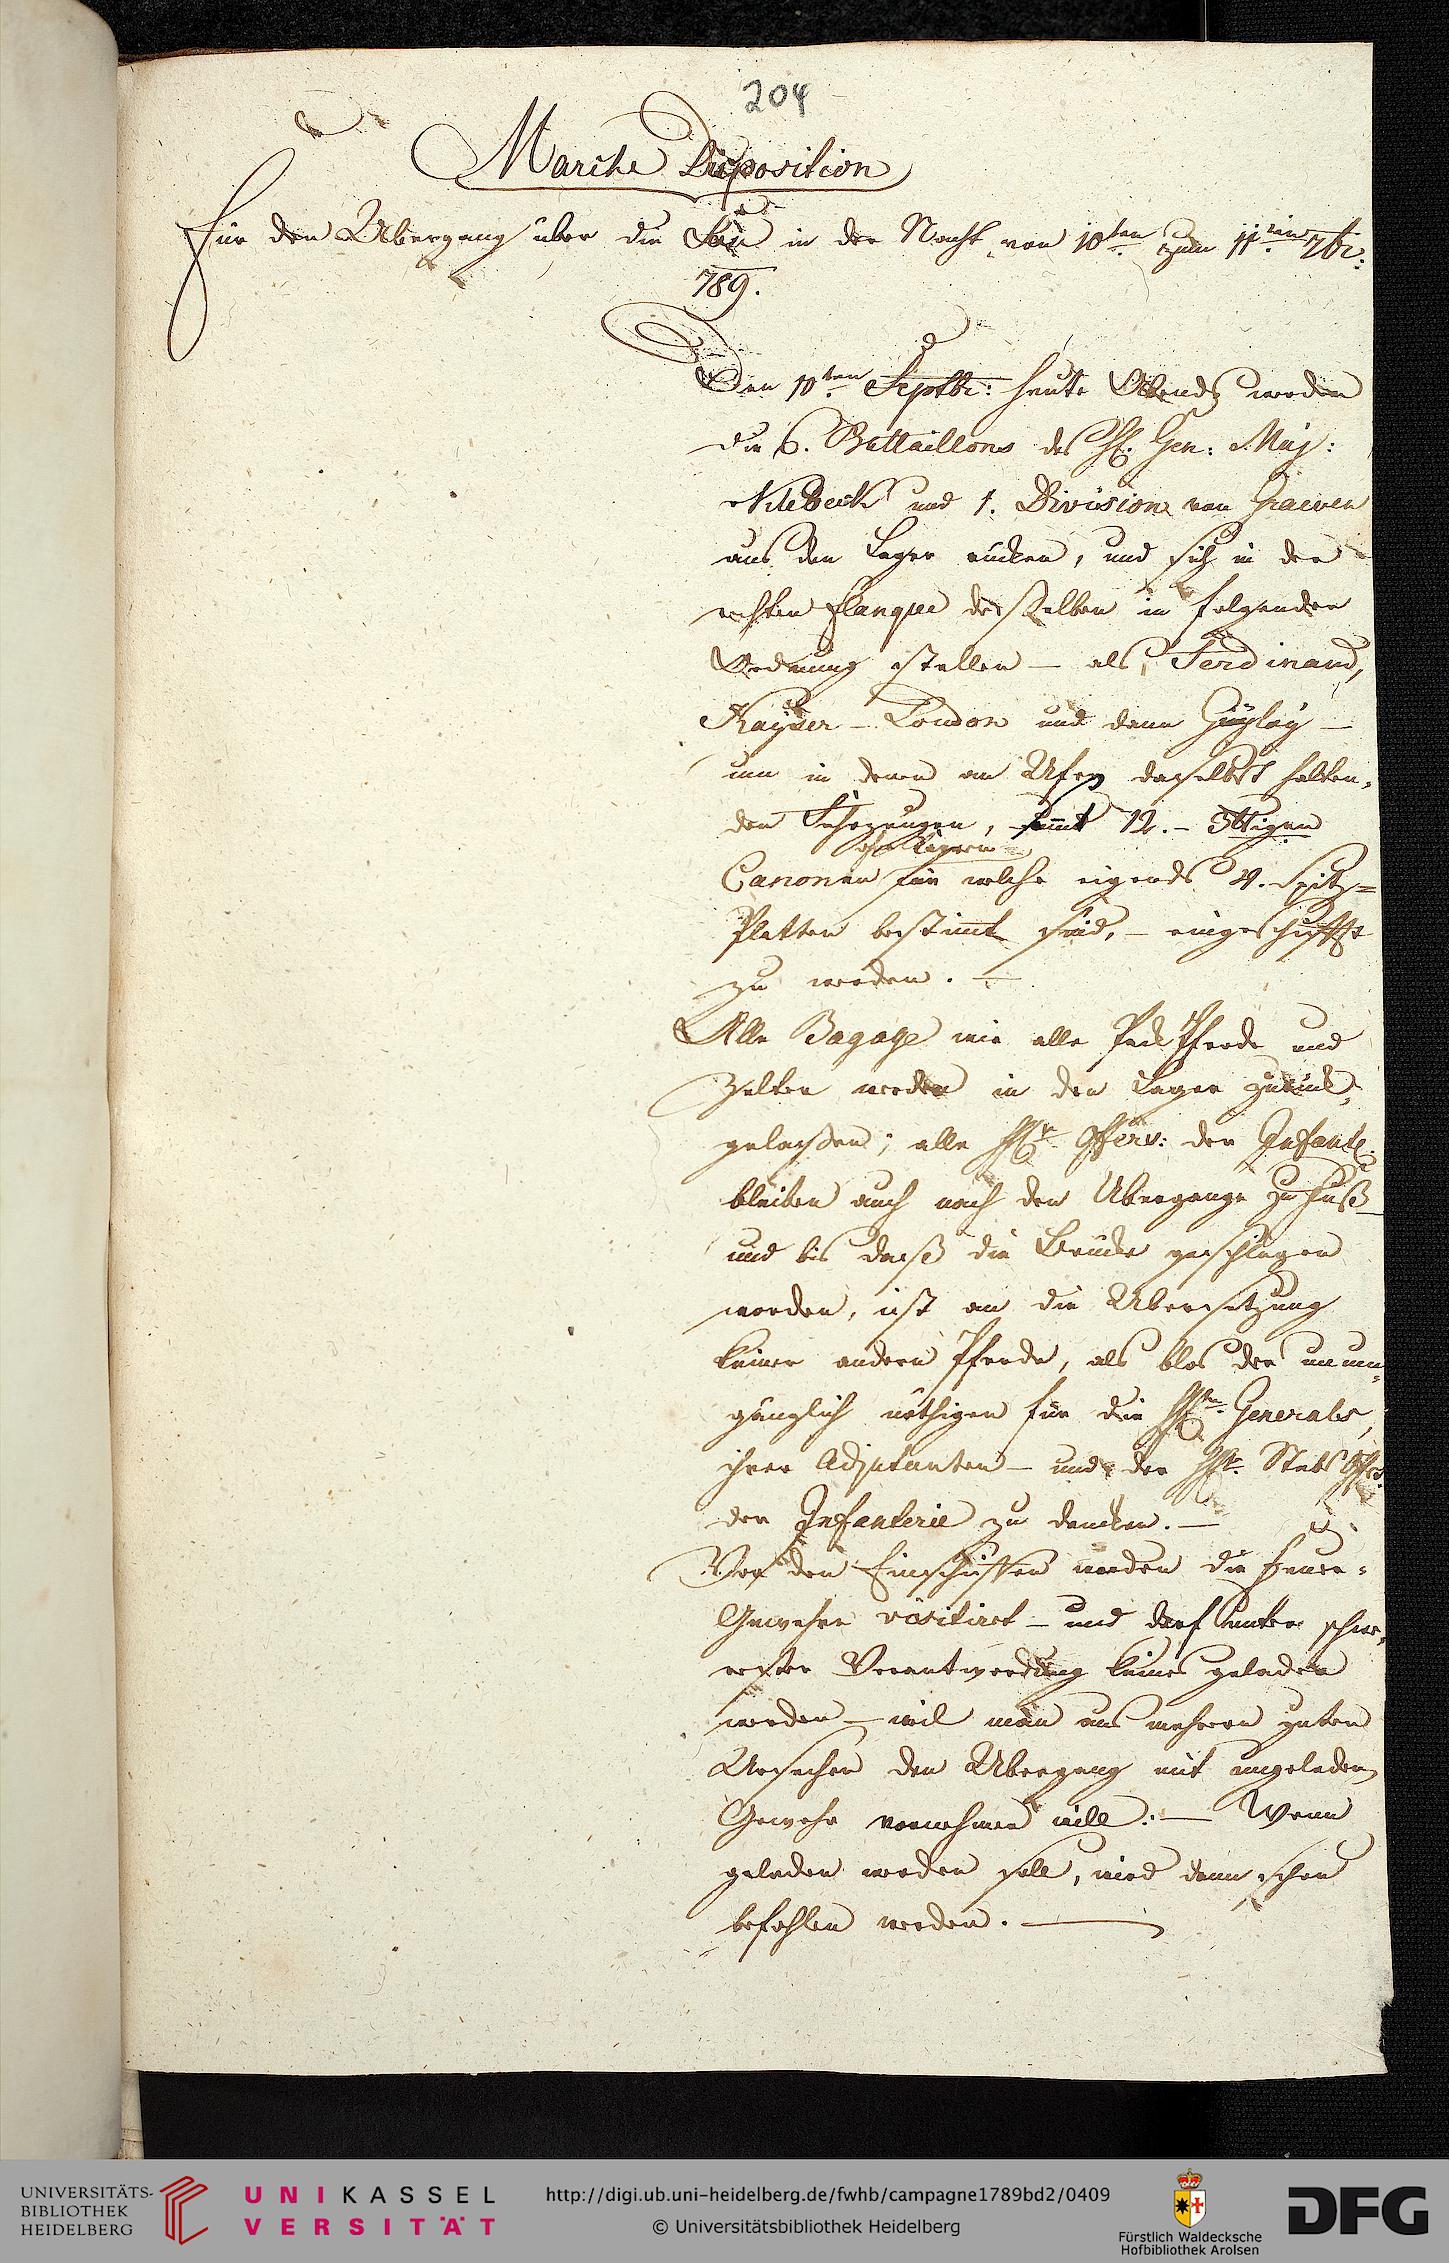 204
Marche Disposition
Für den Übergang über die Sau in der Nacht von 10ten zum 11ten 7br:
789.
Den 10ten Septbr: heute Abends werden
die 6. Battaillons des H: Gen: Maj:
und 1. Division von Graeven
aus den Lager rücken, und sich in der
rechten Flanque desselben in folgender
Ordnung stellen – als, Ferdinand,
Kayser – Loudon und dann Gyulay –
um in denen am Ufer daselbst halten,
den Fahrzeugen, sammt 12. – 3ttigen
Canonen für welche eigends 4. Spitz=
Platten bestimt sind, – eingeschifft
zu werden. –
Alle Bagage wie alle Pack Pferde und
Zelter werden in den Lager zurück,
gelassen; alle HHr Offirs: der Infant:
bleiben auch nach den Übergange zu Fuß
und bis dass die Brücke geschlagen
worden, ist an die Übersetzung
keiner andern Pferde, als blos der unum,
gänglich nöthigen für die HHrn Generals,
ihrer Adjutanten – und der HHr. Stabs Offrs:
der Infanterie zu dencken. –
Vor den Einschiffen werden die Feuer=
Gewehre visitiret – und darf unter schwe,
rester Verantwordung keines geladen
werden – weil man aus mehrern guten
Ursachen den Übergang mit ungeladen
Gewehr vornehmen will: – Wenn
geladen werden soll, wird dann schon
befohlen werden. –
UNIVERSITÄTS-
BIBLIOTHEK
HEIDELBERG
UNIKASSEL
VERSITÄT
http://digi.ub.uni-heidelberg.de/fwhb/campagne1789bd2/0409
© Universitätsbibliothek Heidelberg
Fürstlich Waldecksche
Hofbibliothek Arolsen
DFG